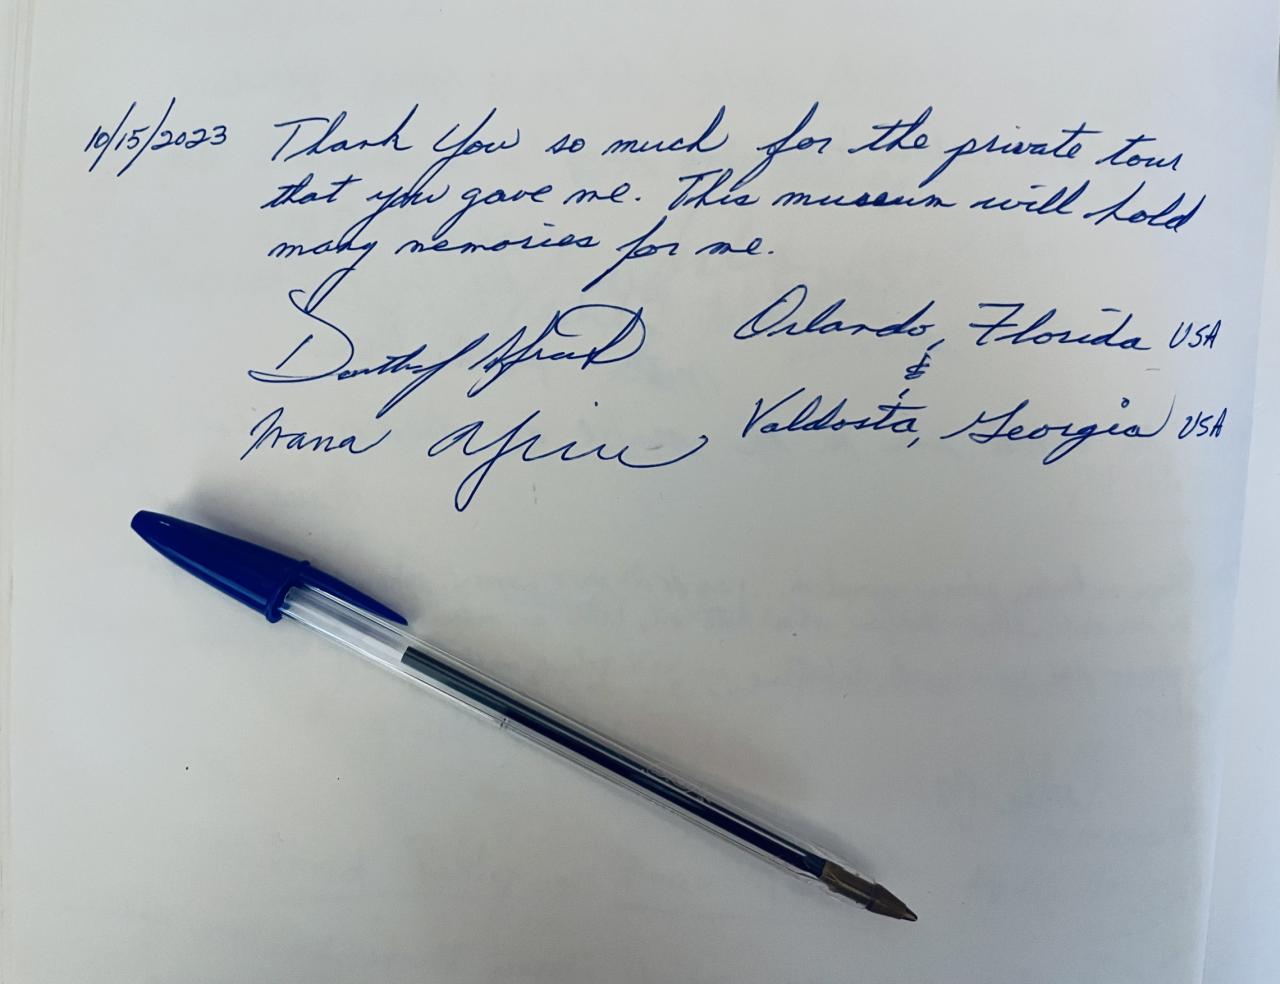 10/15/2023 Thank You so much for the private tour
that you gave me. This museum will hold
many memories for me.
Orlando, Florida USA
&
Ivana
Valdosta, Georgia USA